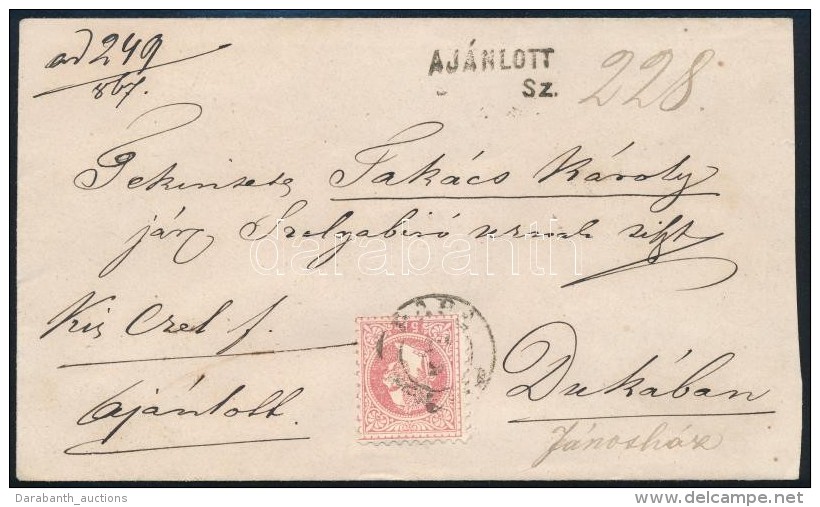 ad 249
867.
AJÁNLOTT
Sz. 228.
Tekintetes Takács Károly
jár. Szolgabiró urnak
darabanth
Kis Czel f.
Ajánlott.
Dukában
Jánosháza
Darabanth_auctions
http://www.delcampe.net